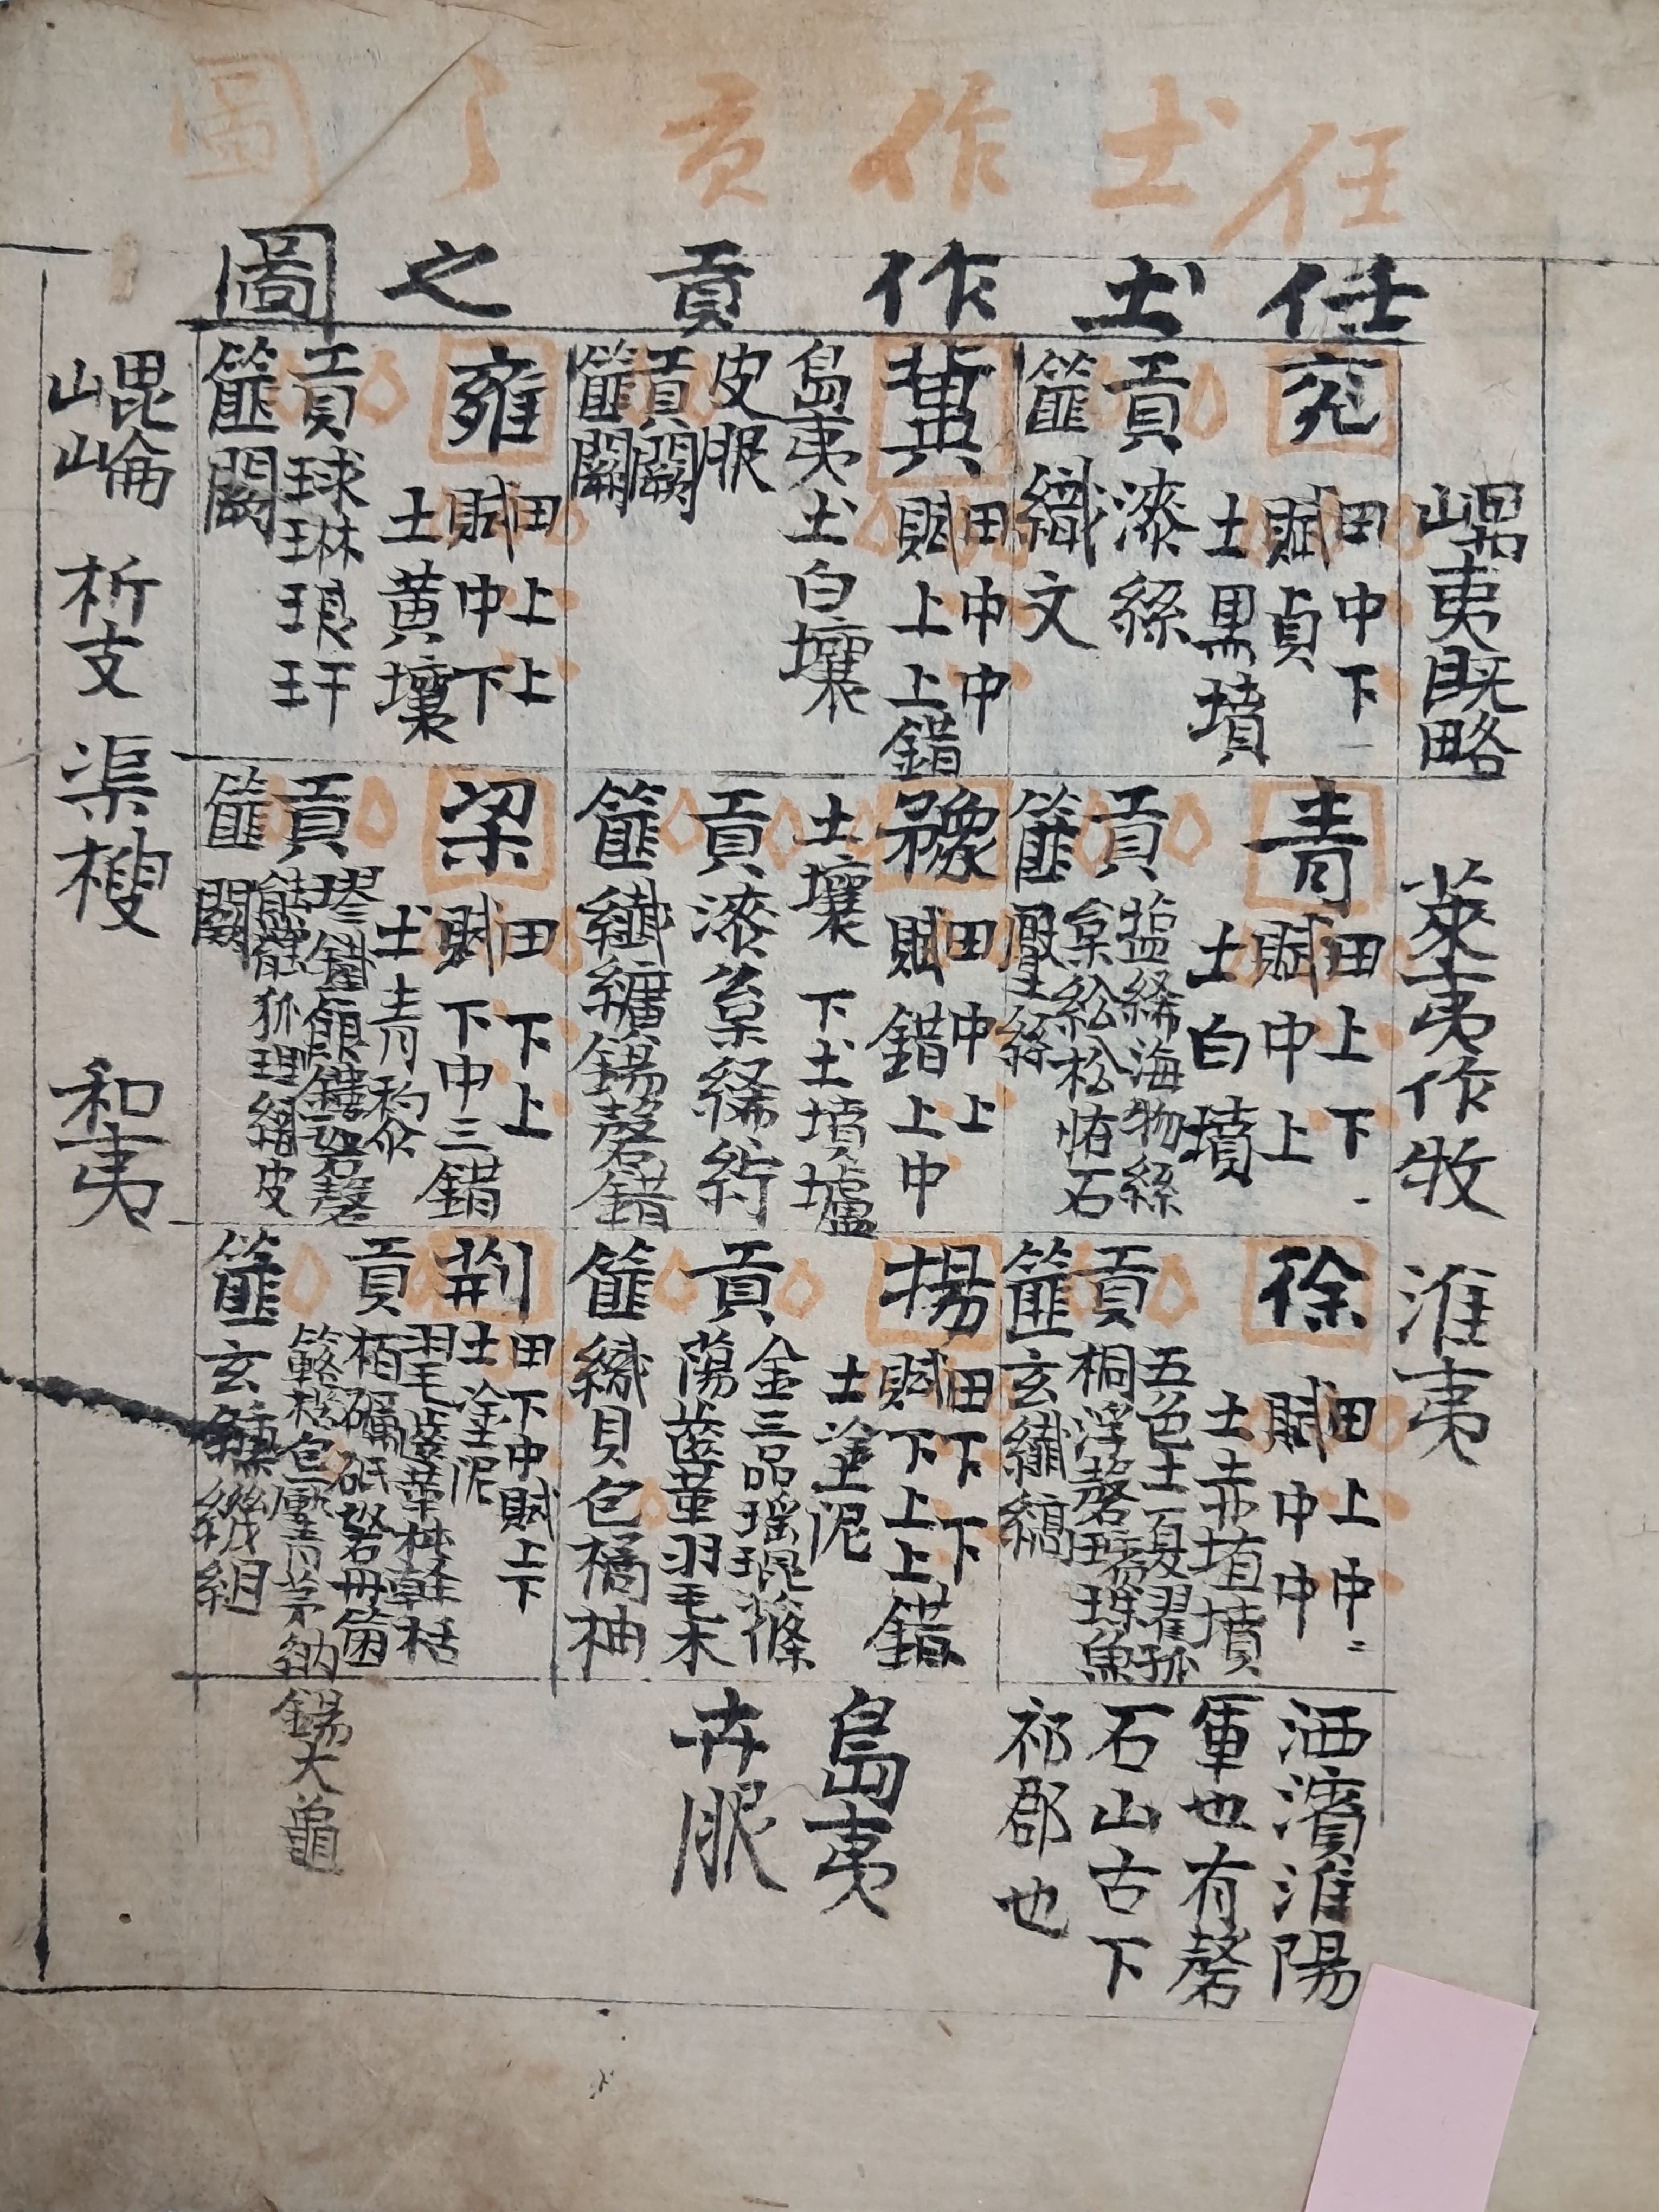 任土作貢了圖
任土作貢之圖
嵎夷既略
萊夷作牧
淮夷
兖
田中下
賦貞
土黒墳
貢漆絲
篚織文
冀
田中中
賦上上錯
島夷土白壤
皮服
貢闕
篚闕
雍
田上上
賦中下
土黄壤
貢球琳琅玕
篚闕
青
田上下
賦中上
土白墳
貢
塩絺海物絲
枲鈆松恠石
篚檿絲
豫
田中上
賦錯上中
土壤下土墳壚
貢漆枲絺紵
篚纎纊錫磬錯
梁
田下上
賦下中三錯
土青
貢
璆鐵銀鏤砮磬
熊羆狐狸織皮
篚闕
徐
田上中
賦中中
土赤埴墳
貢
五色土夏翟孤
桐浮磬蠙珠魚
篚玄纎縞
揚
田下下
賦下上上錯
土塗泥
貢
金三品瑶琨篠
蕩齒革羽毛木
篚織貝包橘柚
荆
田下中賦上下
土塗泥
貢
羽毛齒革杶榦栝
栢礪砥砮丹箘
簵楛包匭菁茅納錫大龜
篚玄纁璣組
泗濱淮陽
軍也有磬
石山古下
祁郡也
島夷
卉服
崐崘
析支
渠梗
和夷